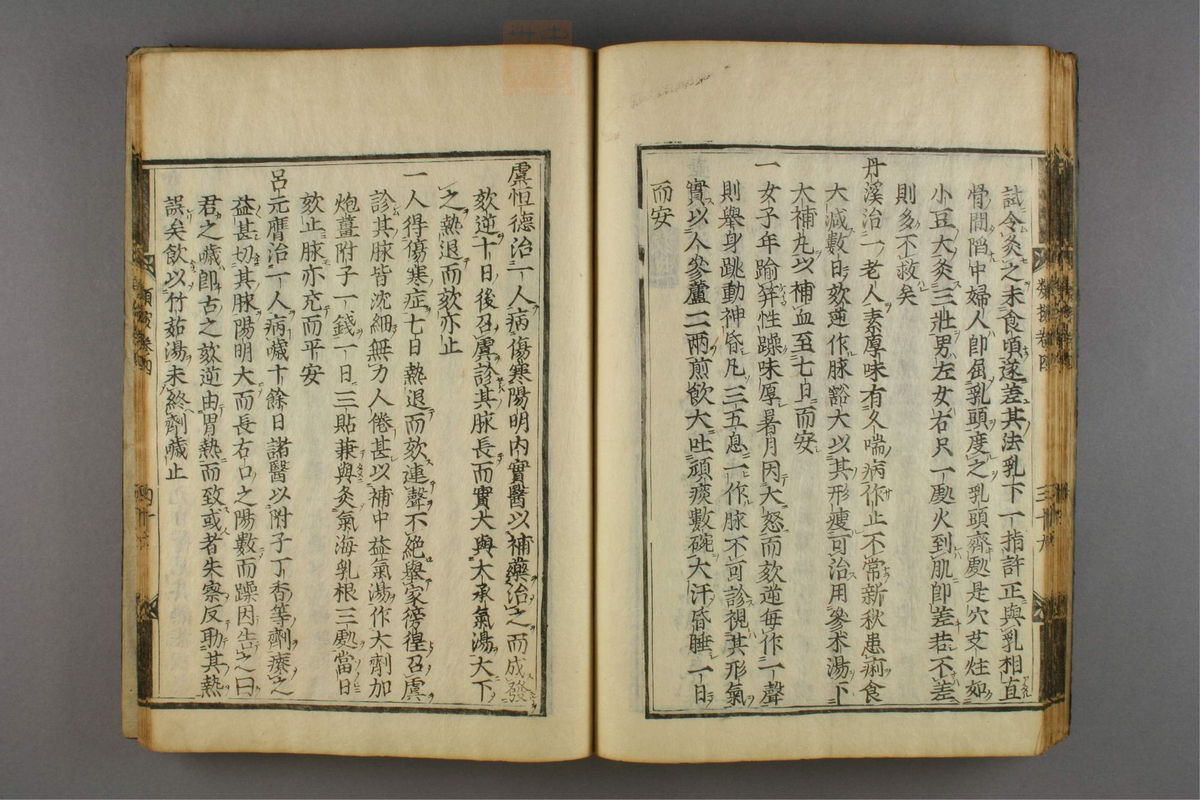 試令灸之未食頃遂差其法乳下一指許正與乳相直
骨間陷中婦人即屈乳頭度之乳頭齊處是穴艾炷如
小豆大灸三壯男左女右只一處火到肌即差若不差
則多不救矣
丹溪治一老人素厚味有久喘病作止不常新秋患痢食
大減數日欬逆作脉豁大以其形瘦可治用參朮湯下
大補丸以補血至七日而安
一女子年踰笄性躁味厚暑月因大怒而欬逆每作一聲
則舉身跳動神昏凡三五息一作脉不可診視其形氣
實以人參蘆二兩煎飲大吐頑痰數碗大汗昏睡一日
而安
虞恒德治一人病傷寒陽明内實醫以補藥治之而成發
欬逆十日後召虞診其脉長而實大與大承氣湯大下
之熱退而欬亦止
一人得傷寒症七日熱退而欬連聲不絶舉家徬徨召虞
診其脉皆沈細無力人倦甚以補中益氣湯作大劑加
炮薑附子一錢一日三貼兼與灸氣海乳根三處當日
欬止脉亦充而平安
呂元膺治一人病噦十餘日諸醫以附子丁香等劑療之
益甚切其脉陽明大而長右口之陽數而躁因告之曰
君之噦即古之欬逆由胃熱而致或者朱察反助其熱
誤矣飲以竹茹湯未終劑噦止